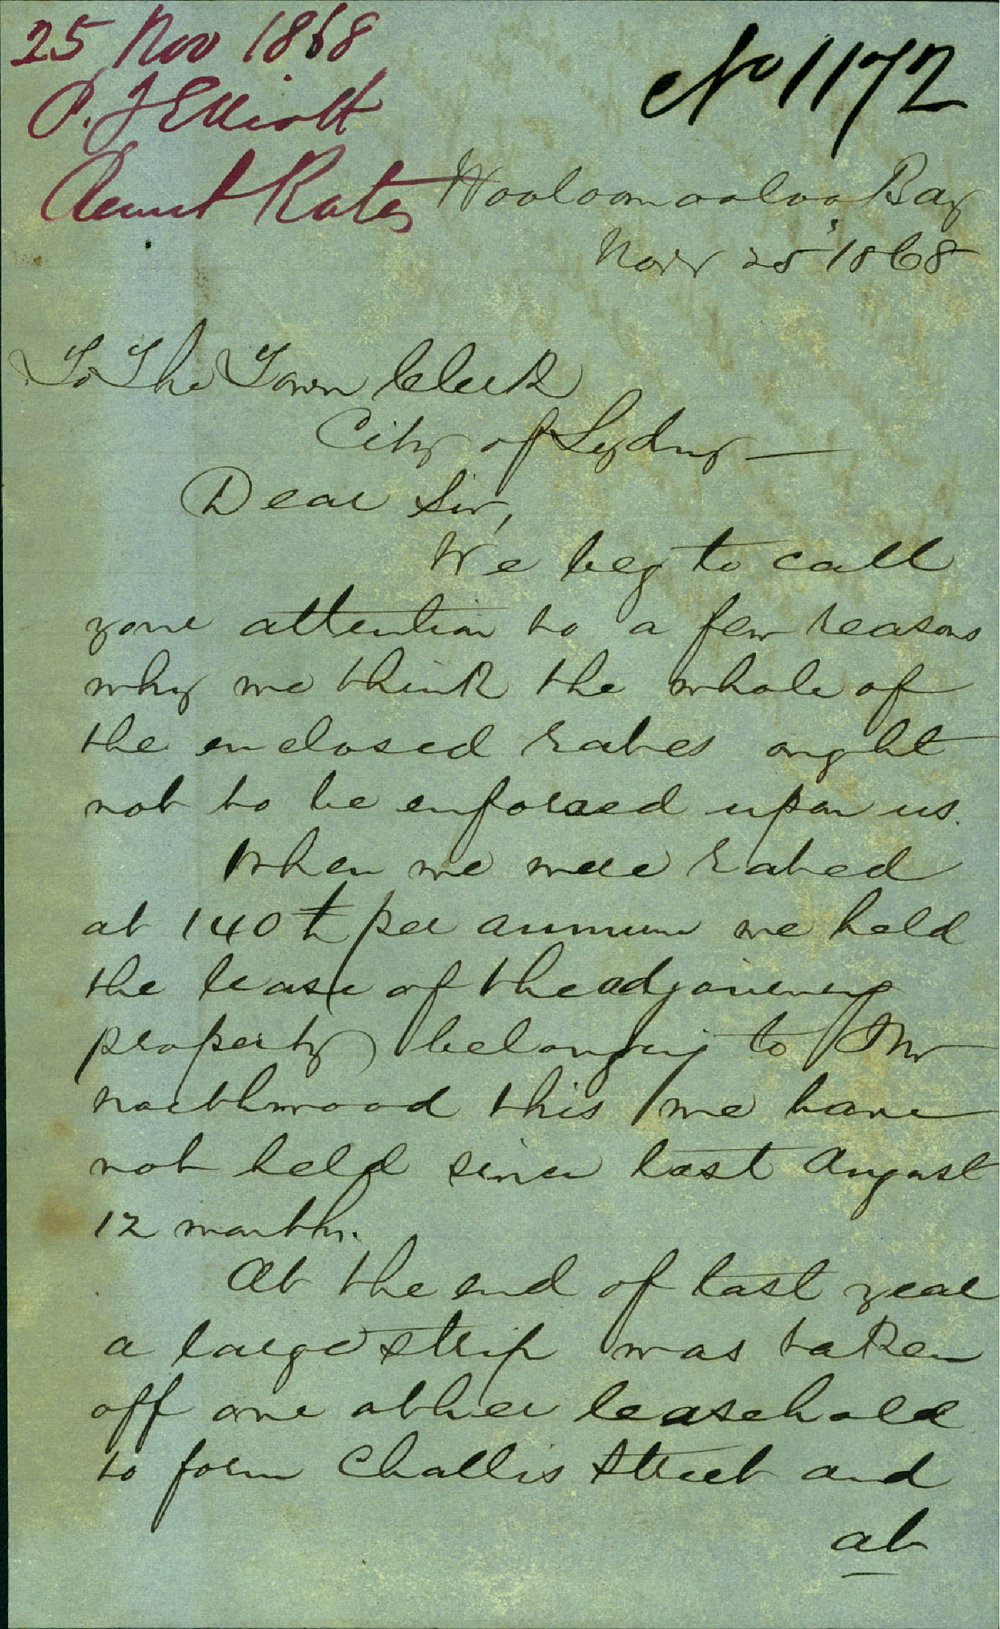 25 Nov 1868
P. J Elliott
Remit Rates
No 1172
Wooloomooloo Bay
Novr 25 1868
To The Town Clerk
City of Sydney
Dear Sir,
We beg to call
your attention to a few reasons
why we think the whole of
the enclosed rates ought
not to be enforced upon us.
When we were rated
at 140£ per annum we held
the lease of the adjoining
property belonging to Mr
Northwood this we have
not held since last August
12 months.
At the end of last year
a large strip was taken
off our other leasehold
to form Challis Street and
at